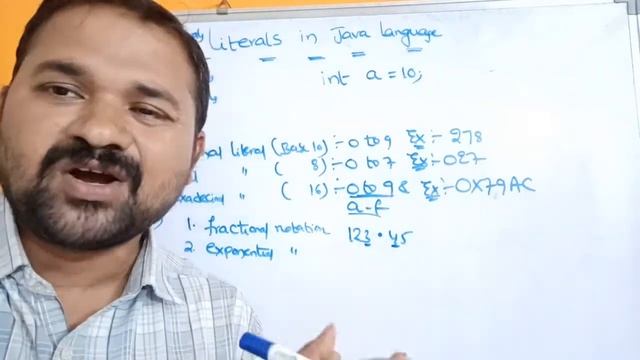 Literals in Java Language
int a = 10;
literal (Base 10) :- 0 to 9 Ex :- 278
" ( 8) :- 0 to 7 Ex :- 027
( 16) :- 0 to 9 & Ex :- 0X79AC
a-f
1. fractional notation 123.45
2. exponential "